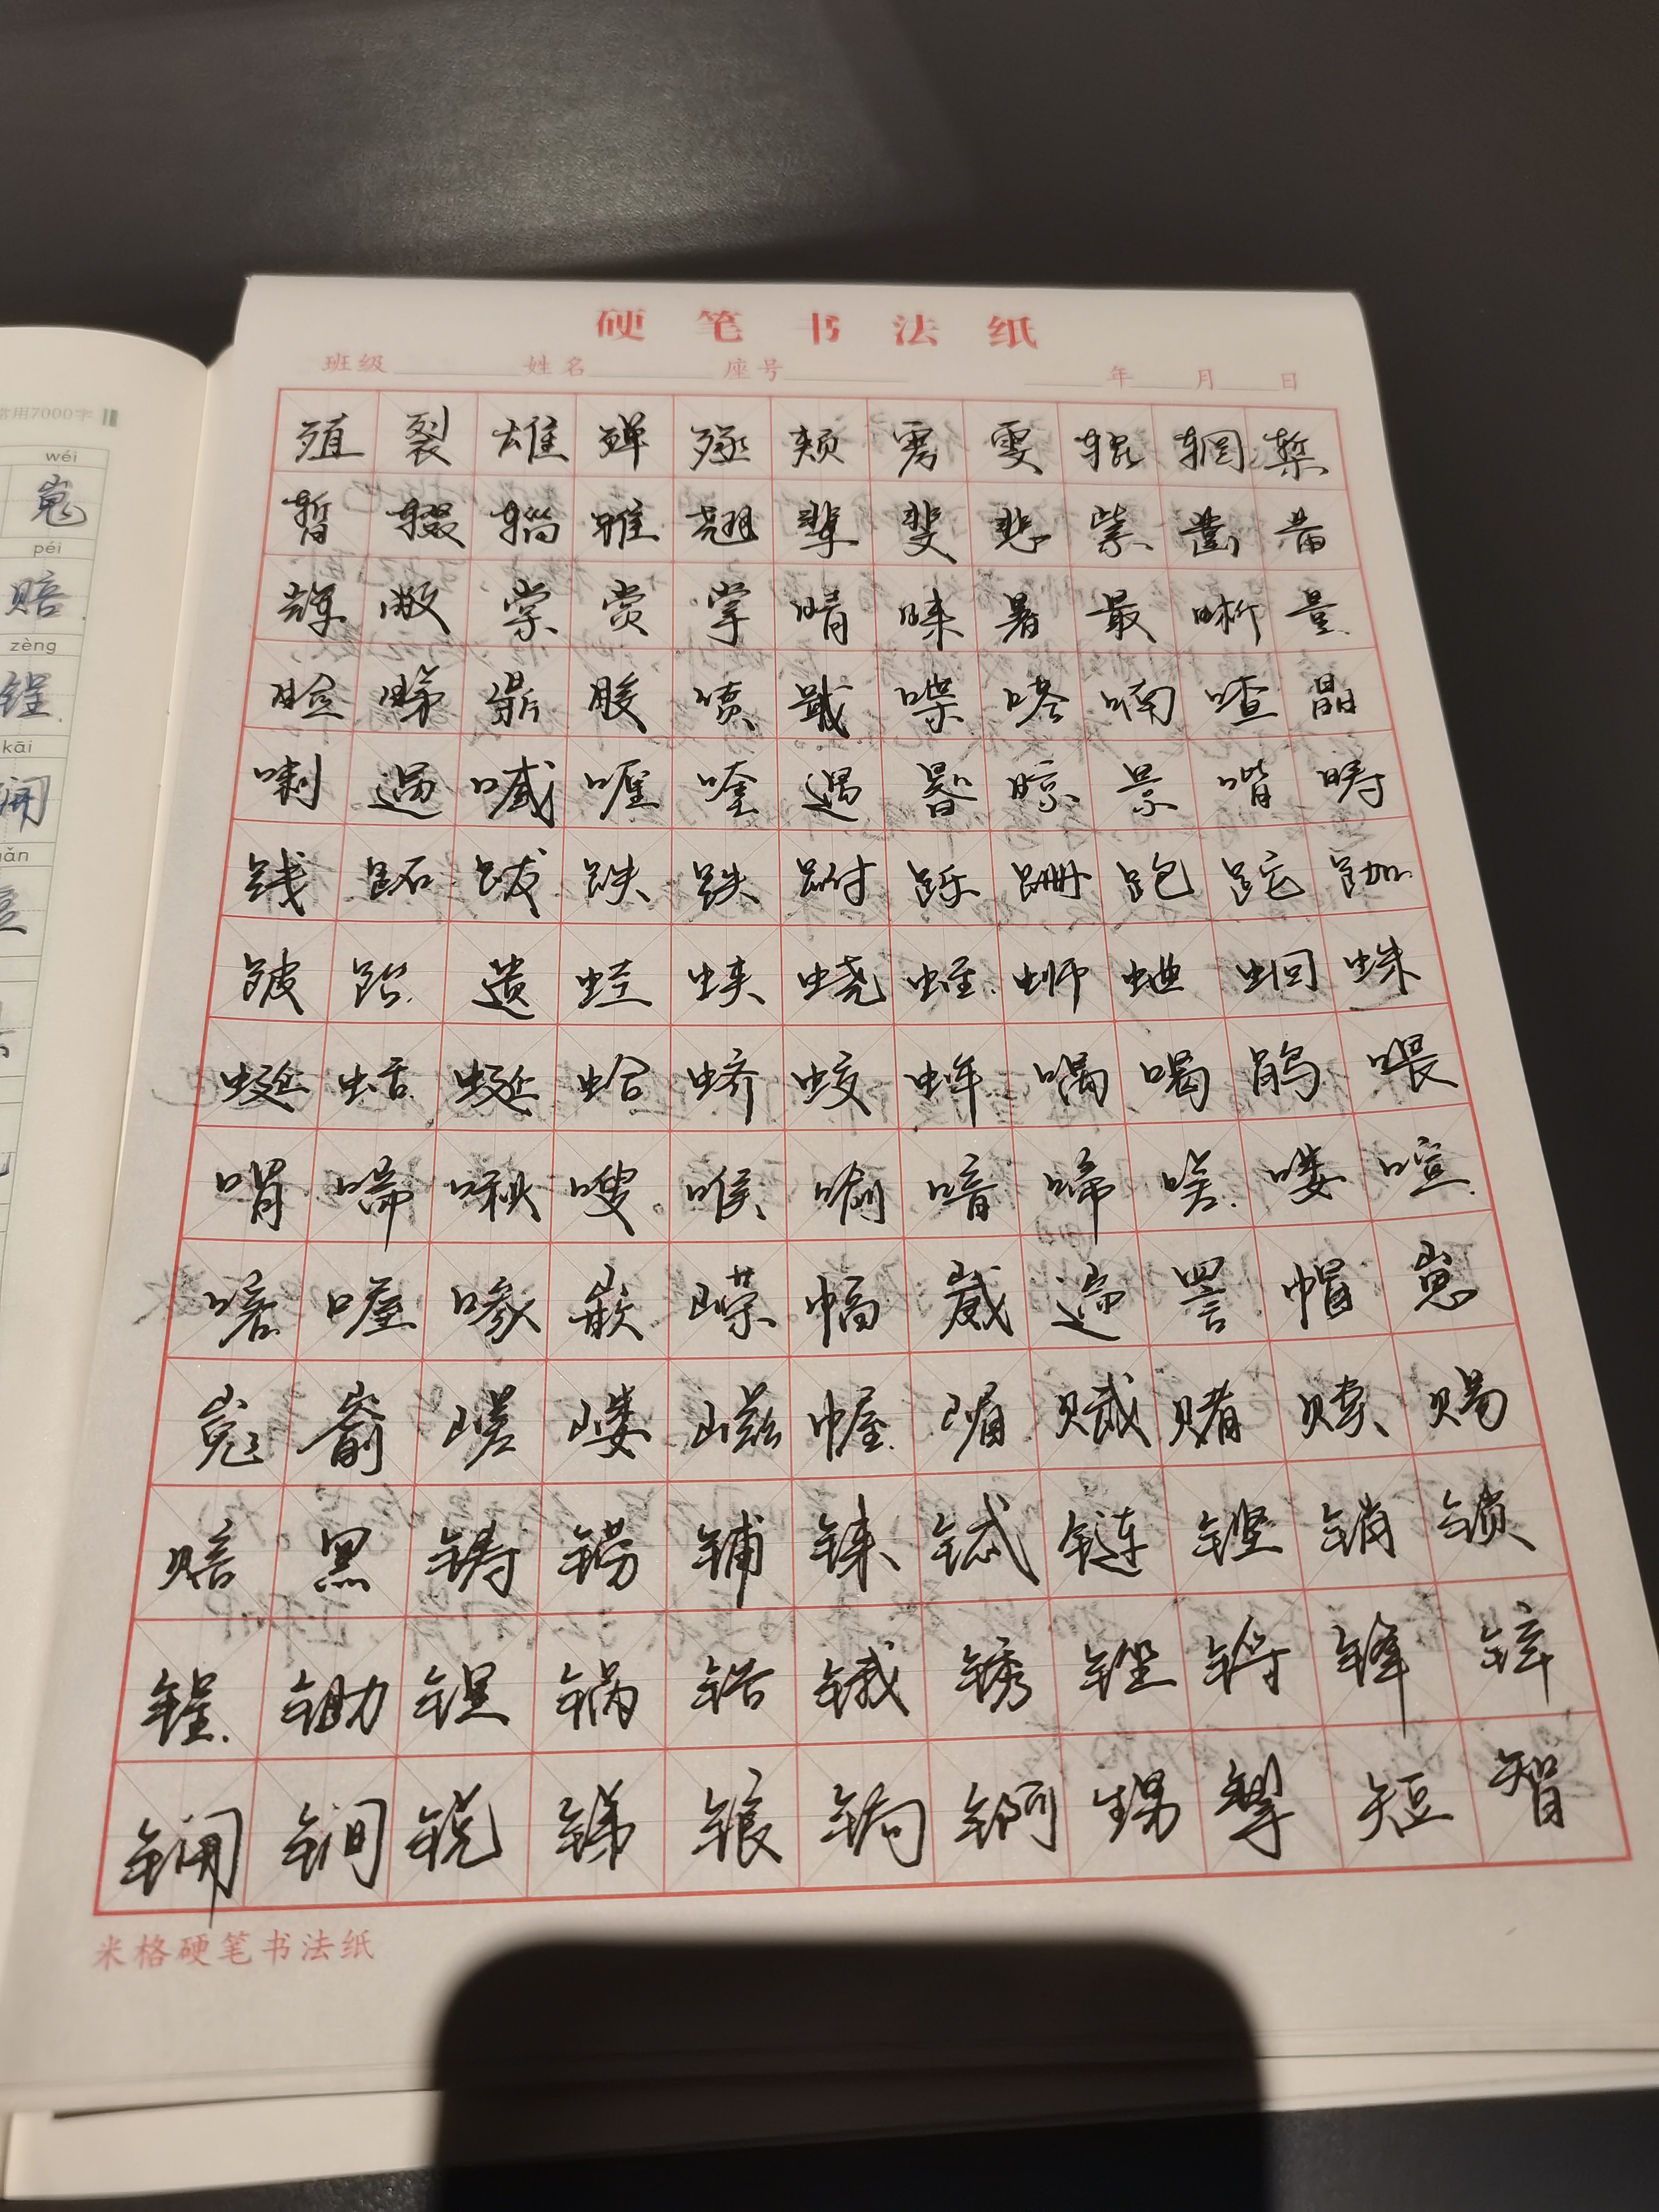 常用7000字
wéi
嵬
péi
赔
zèng
锃
kāi
锎
硬笔书法纸
班级 姓名 座号 年 月 日
殖 裂 雄 殚 殛 颊 雱 雯 辊 辋 椠
暂 辍 辎 雅 翘 辈 斐 悲 紫 凿 黹
辉 敞 棠 赏 掌 晴 睐 暑 最 晰 量
睑 睇 鼎 睃 喷 戢 喋 嗒 喃 喳 晶
喇 遇 喊 喱 喹 遏 晷 晾 景 喈 畴
践 跖 跋 跌 跌 跗 跞 跚 跑 跎 跏
跛 跆 遗 蛙 蛱 蛲 蛭 蛳 蛐 蛔 蛛
蜓 蛞 蜒 蛤 蛴 蛟 蛑 喁 喝 鹃 喂
喟 啼 啾 嗖 喉 喻 喑 啼 嗟 喽 喧
喀 喔 喙 嵌 嵘 幅 崴 遄 詈 帽 崽
嵬 嵛 嵯 嵝 嵫 幄 嵋 赋 赌 赎 赐
赔 黑 铸 铹 铺 铼 铽 链 铿 销 锁
锃 锄 锂 锅 锆 锇 锈 锉 锊 锋 锌
锎 锏 锐 锑 锒 锔 锕 甥 掣 短 智
米格硬笔书法纸